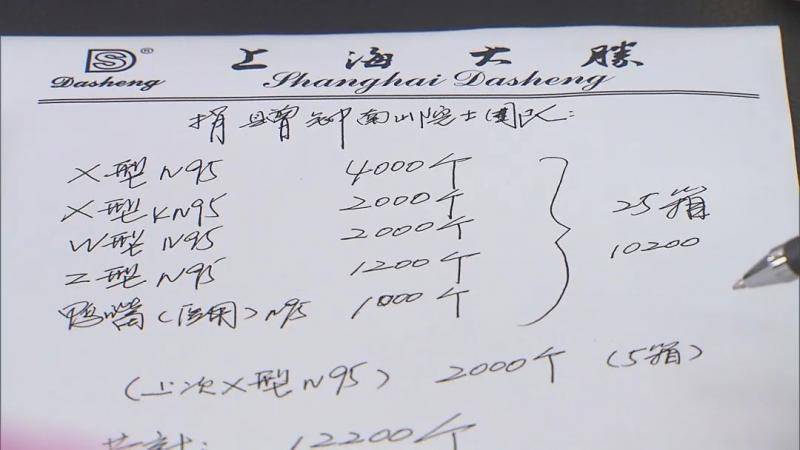 DS® 上海大勝
Dasheng Shanghai Dasheng
捐赠钟南山院士团队:
X型 N95 4000个
X型 KN95 2000个
W型 N95 2000个 25箱
Z型 N95 1200个 10200
鸭嘴(医用)N95 1000个
(上次X型N95) 2000个 (5箱)
共计: 12200个